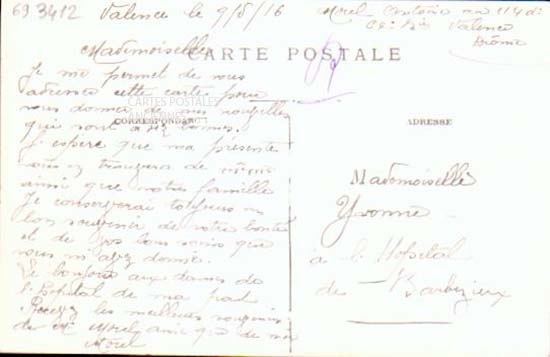 693412
Valence le 9/5/16
Morel Antoine au 114 d'
Valence
Drôme
CARTE POSTALE
Mademoiselle
Je me permet de vous
adresser cette carte pour
vous donner de mes nouvelles
qui sont assez bonnes.
CARTES POSTALES
ANCIENNES
CORRESPONDANCE
J'espère que ma présente
vous y trouvera de même
ainsi que votre famille
Je conserverai toujours un
bon souvenir de votre bonté
et de vos bons soins que
vous m'ayez donné.
Le bonjour aux dames de
l'Hopital de ma part
Recevez les meilleurs souvenirs
de Morel ainsi que de
Morel
ADRESSE
Mademoiselle
Yvonne
à l'Hopital
de Barbezieux